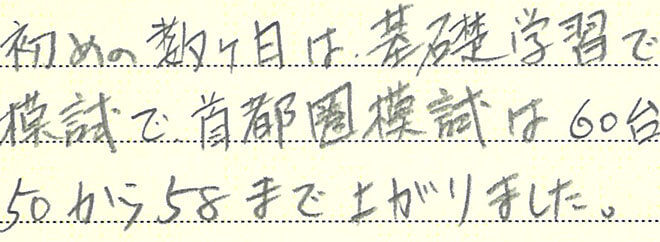 初めの数ヶ月は、基礎学習で
模試で、首都圏模試は60台
50から58まで上がりました。